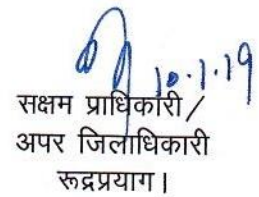 10.1.19
सक्षम प्राधिकारी /
अपर जिलाधिकारी
रूद्रप्रयाग।